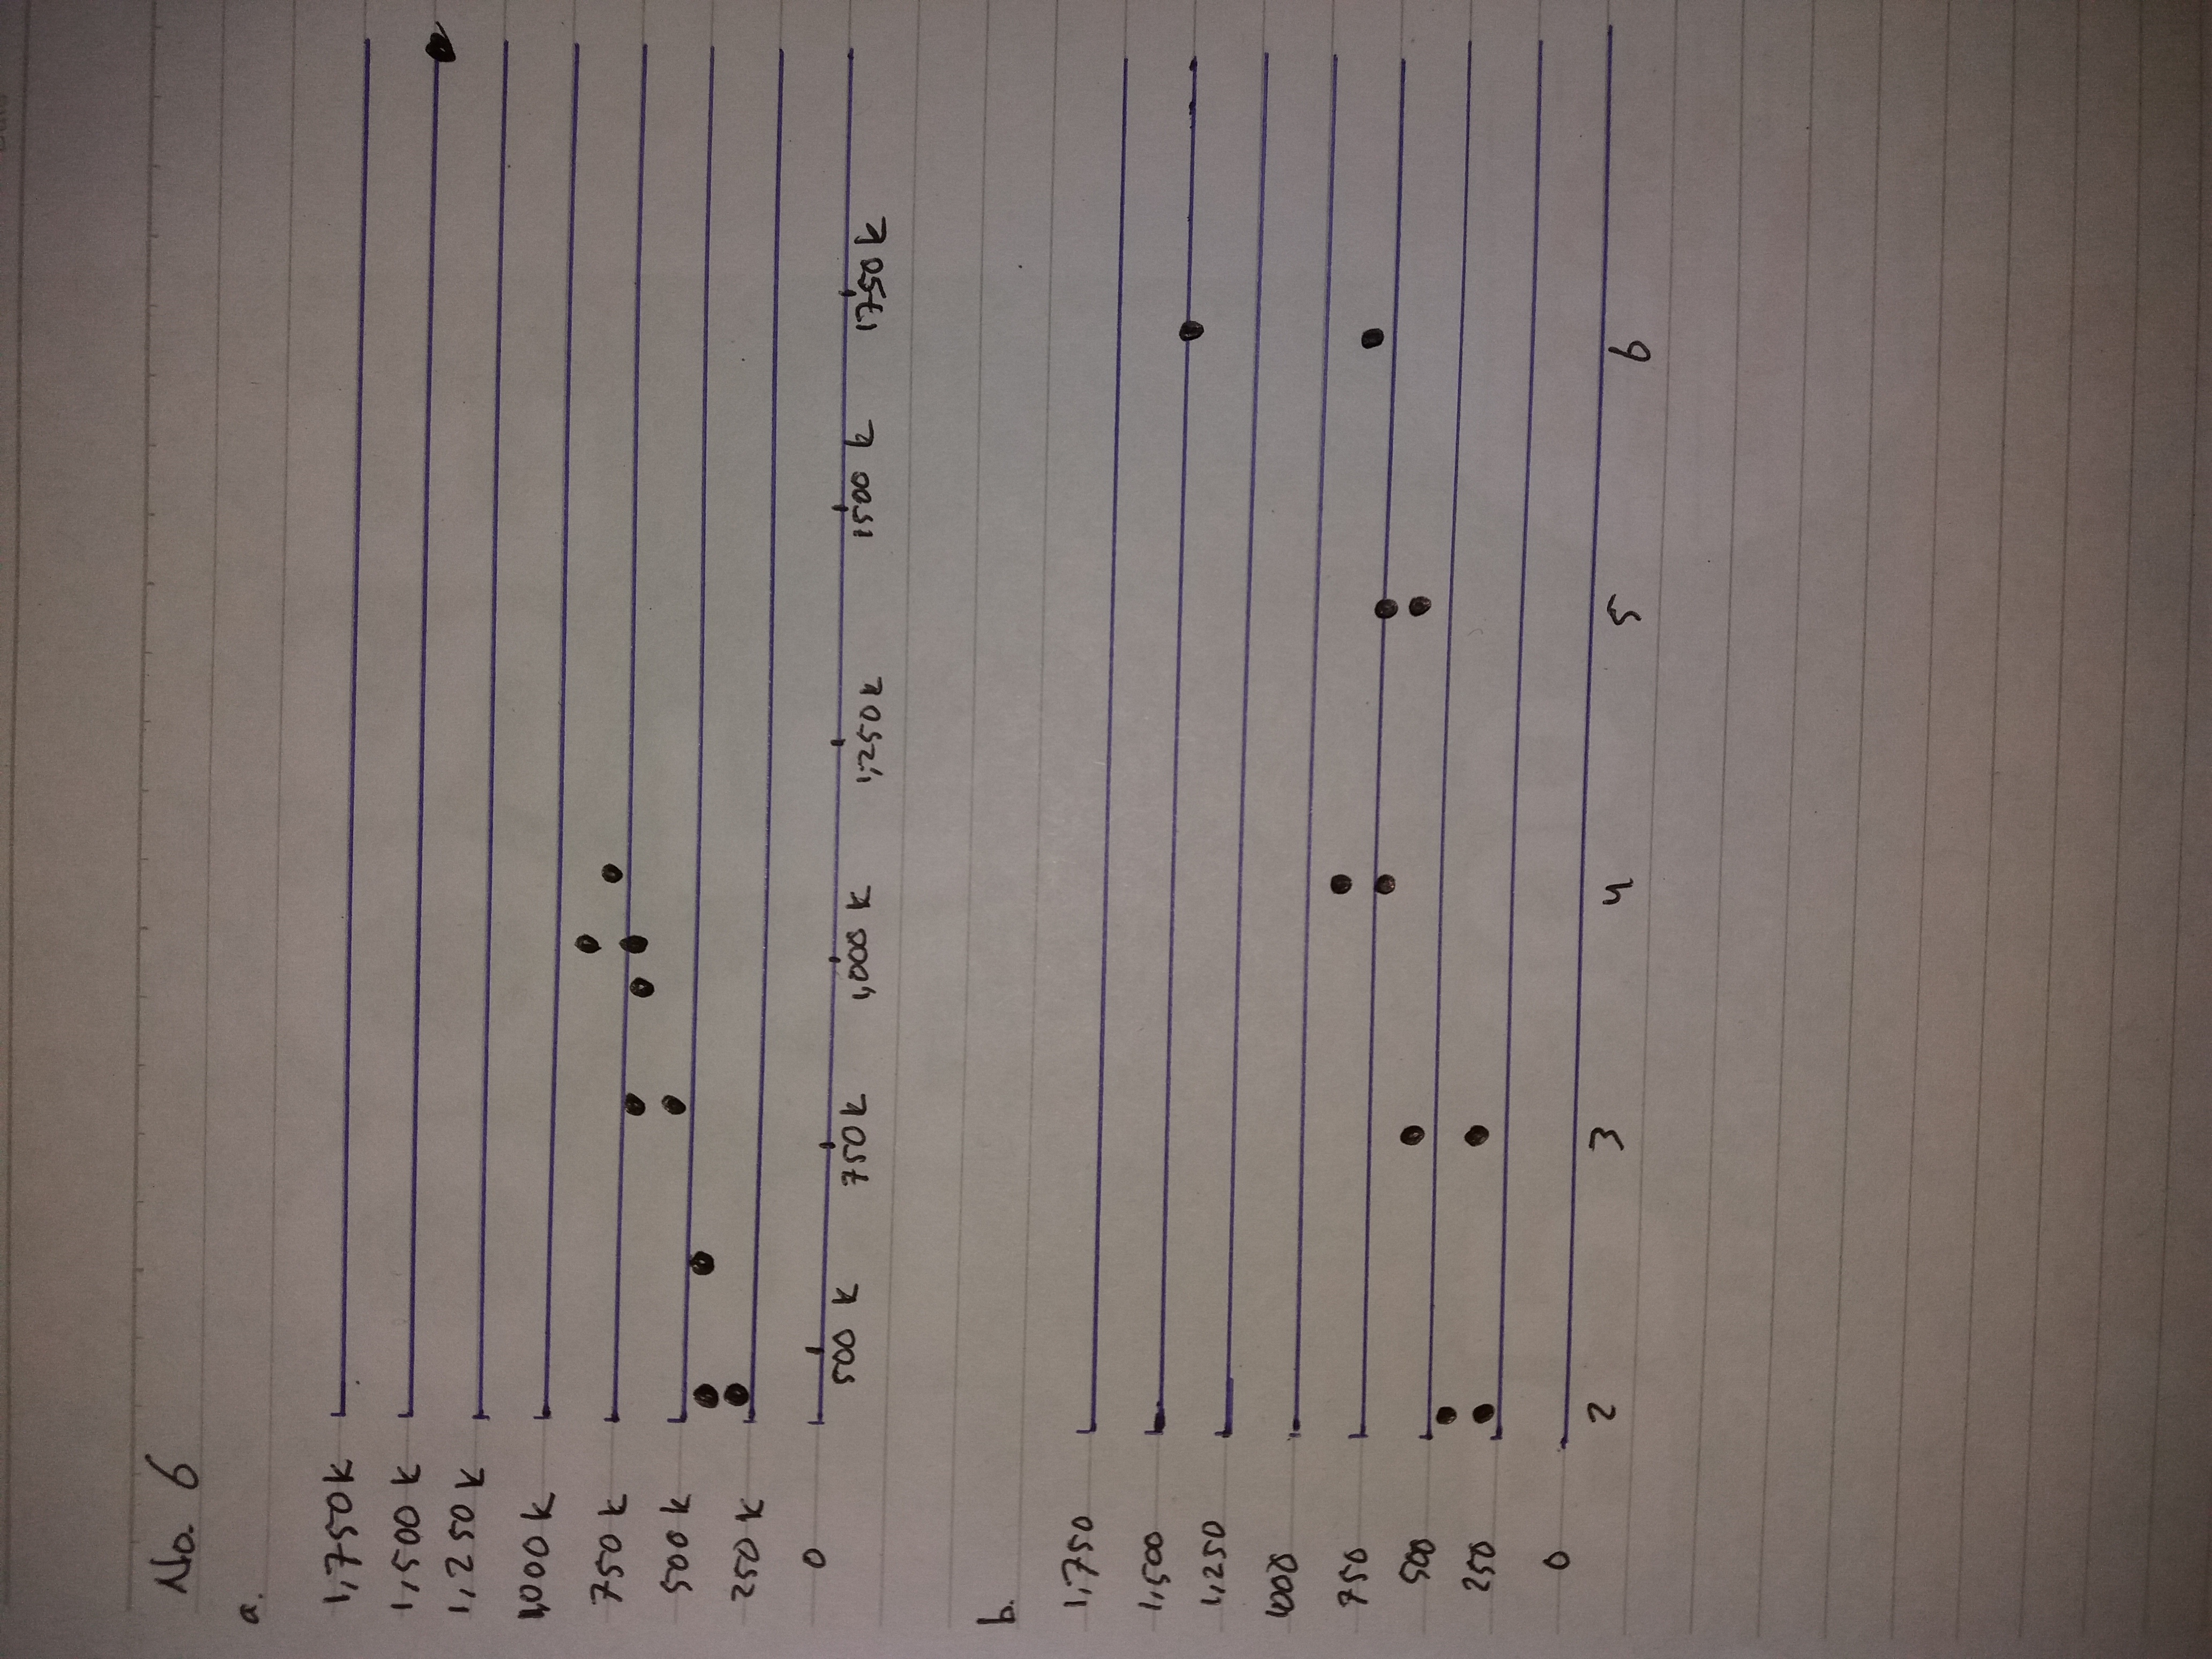 No. 6
a.
1,750 k
1,500 k
1,250 k
1,000 k
750 k
500 k
250 k
0
500 k 750 k 1,000 k 1,250 k 1500 k 1750 k
b.
1,750
1,500
1,250
1000
750
500
250
0
2 3 4 5 6